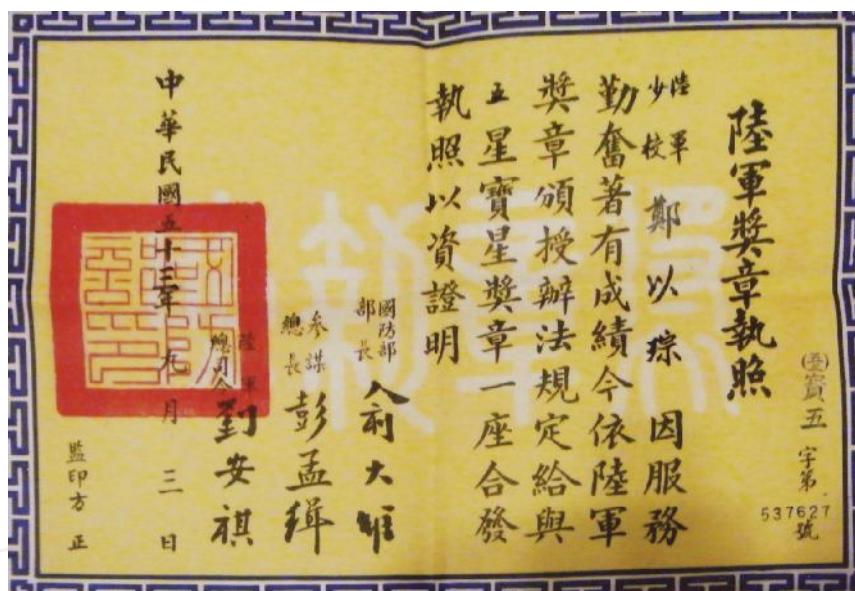 寶五字第537627號
陸軍獎章執照
陸軍少校鄭以琮因服務
勤奮著有成績今依陸軍
獎章頒授辦法規定給與
五星寶星獎章一座合發
執照以資證明
國防部部長俞大維
參謀總長彭孟緝
陸軍總司令劉安祺
中華民國五十三年九月三日
監印方正